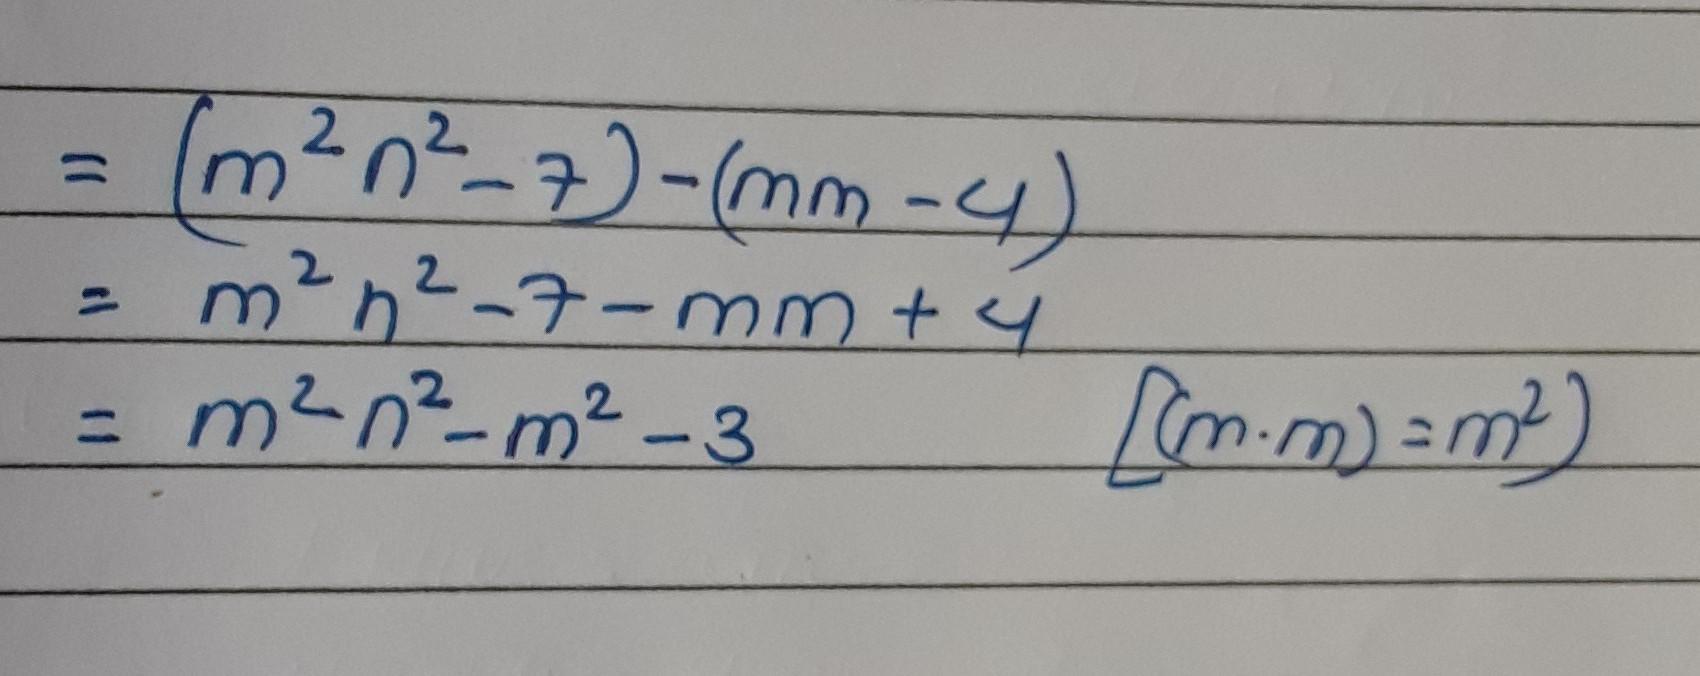 = (m²n² - 7) - (mm - 4)
= m²n² - 7 - mm + 4
= m²n² - m² - 3 [(m·m) = m²)